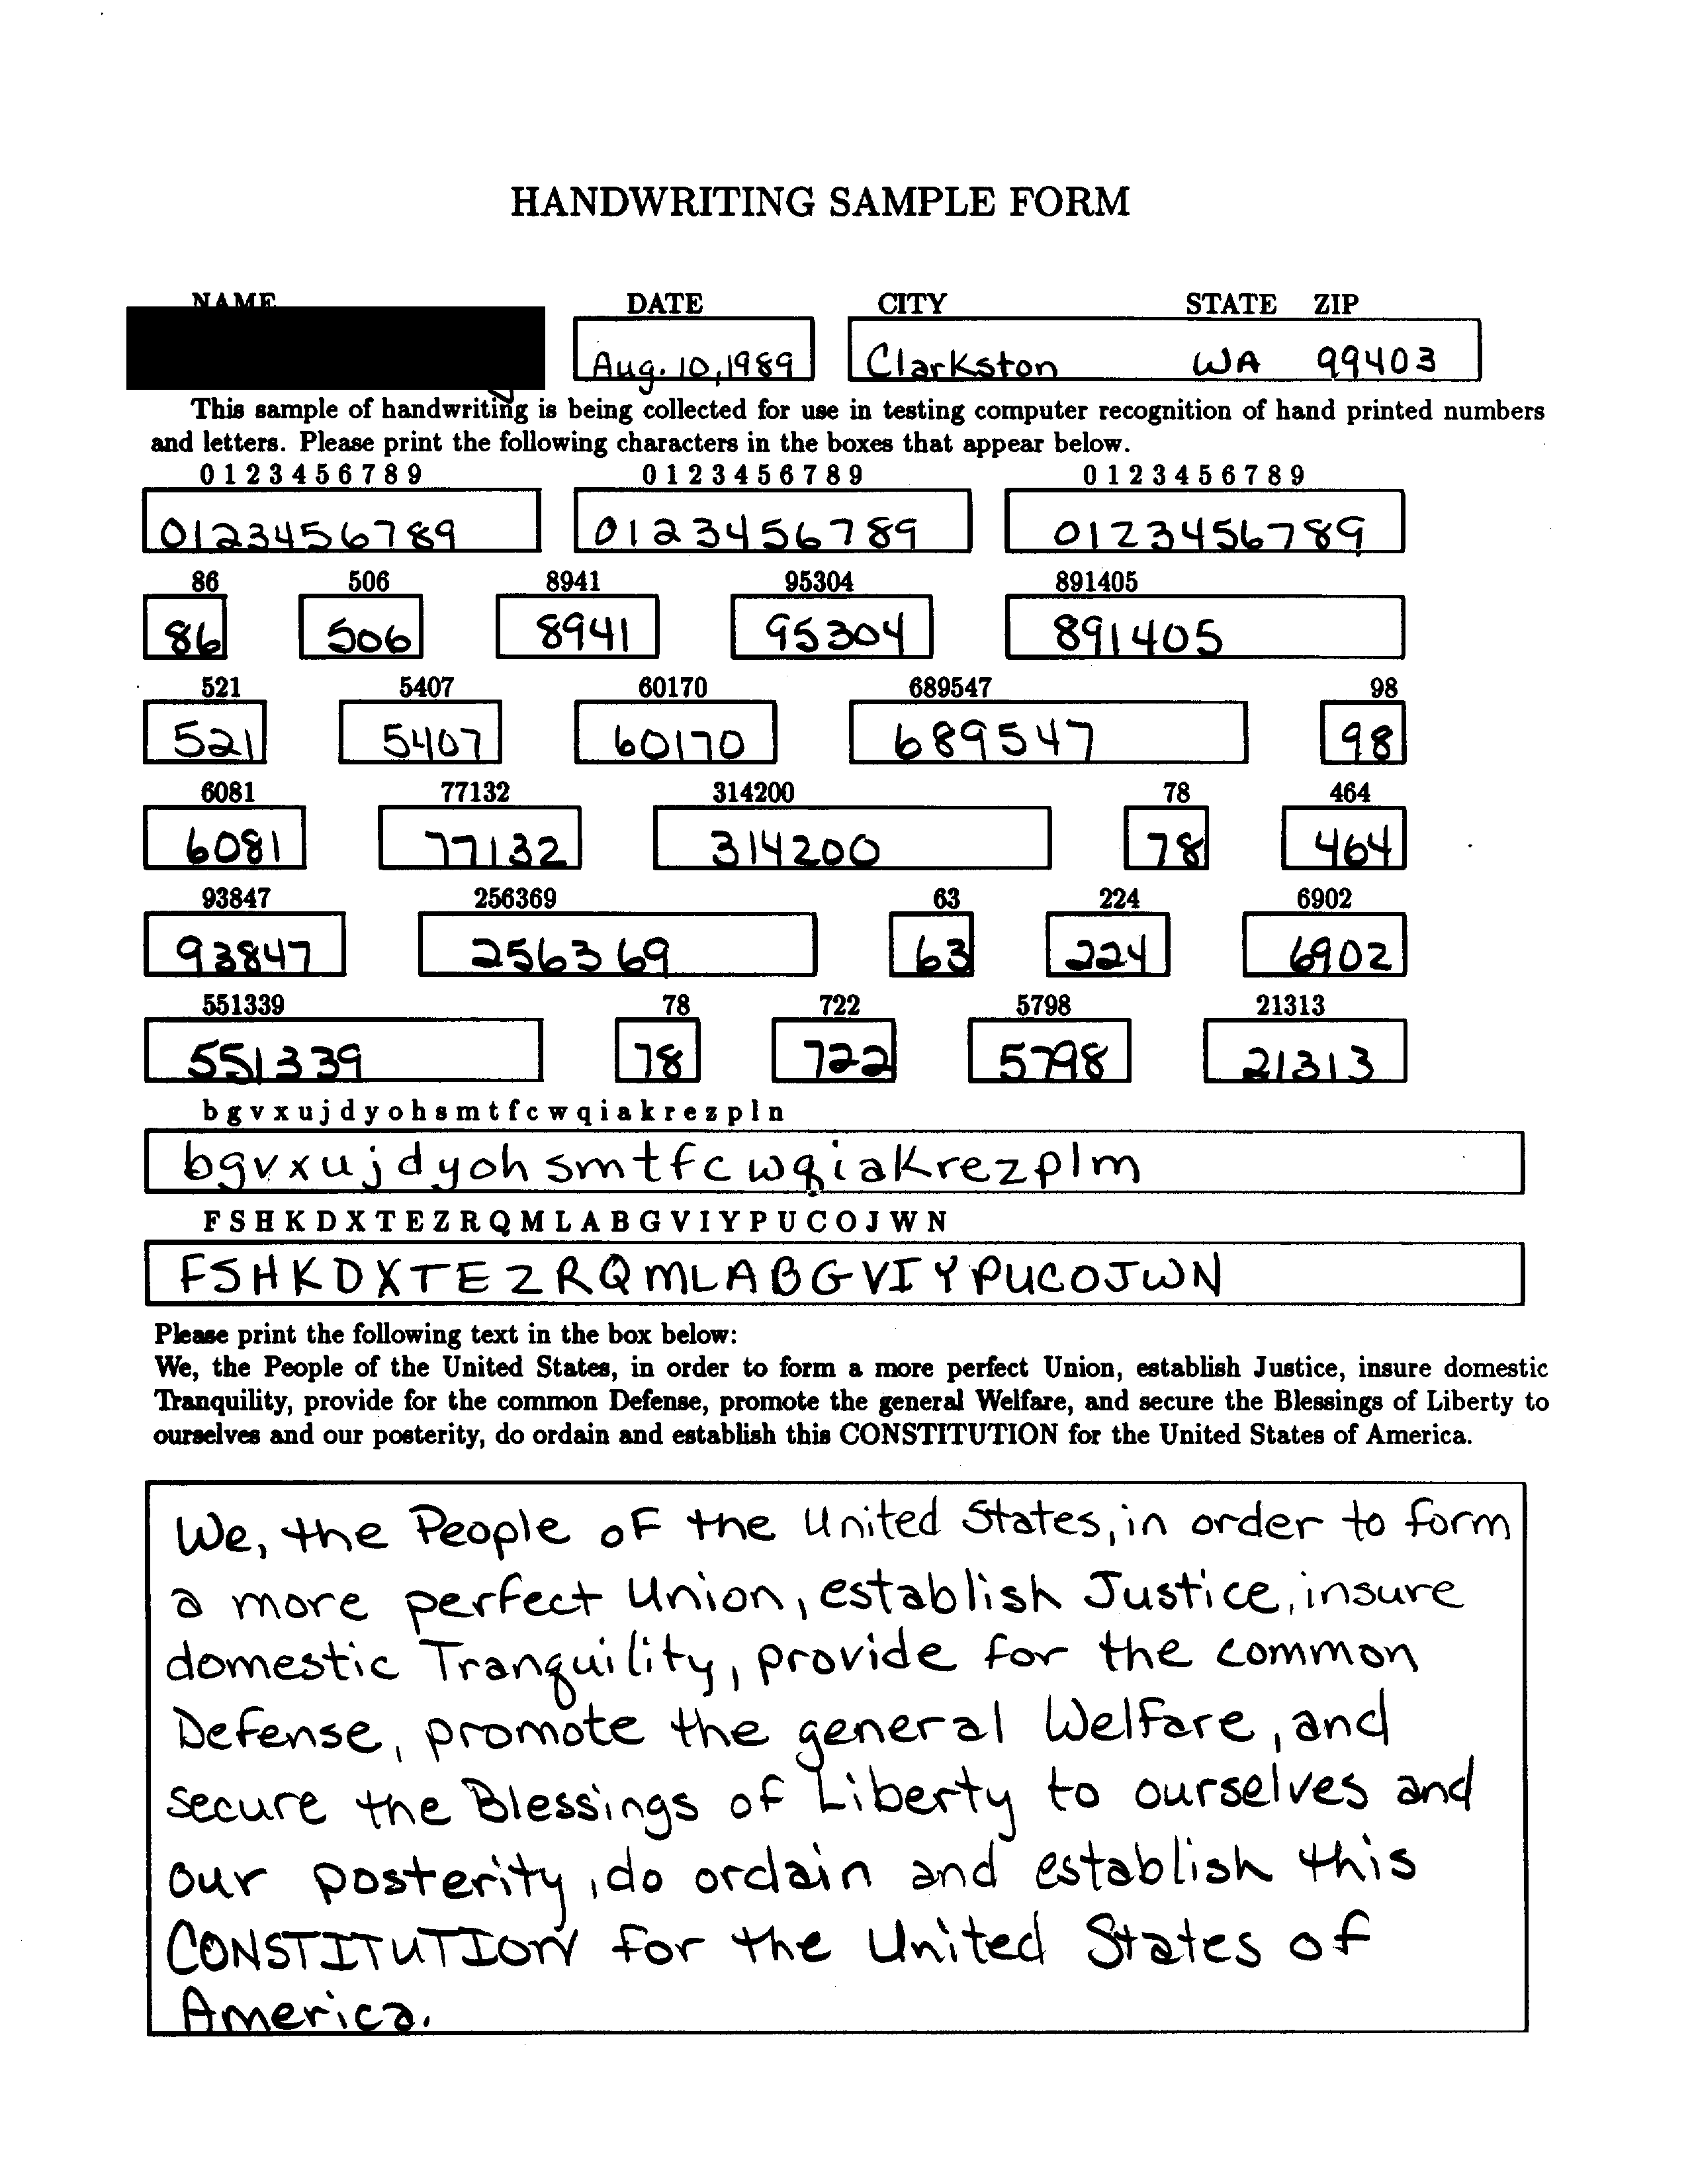 HANDWRITING SAMPLE FORM
NAME DATE CITY STATE ZIP
Aug. 10, 1989 Clarkston WA 99403
This sample of handwriting is being collected for use in testing computer recognition of hand printed numbers
and letters. Please print the following characters in the boxes that appear below.
0 1 2 3 4 5 6 7 8 9 0 1 2 3 4 5 6 7 8 9 0 1 2 3 4 5 6 7 8 9
0123456789 0123456789 0123456789
86 506 8941 95304 891405
86 506 8941 95304 891405
521 5407 60170 689547 98
521 5407 60170 689547 98
6081 77132 314200 78 464
6081 77132 314200 78 464
93847 256369 63 224 6902
93847 256369 63 224 6902
551339 78 722 5798 21313
551339 78 722 5798 21313
b g v x u j d y o h s m t f c w q i a k r e z p l n
bgvxujdyohsmtfcwqiakrezplm
F S H K D X T E Z R Q M L A B G V I Y P U C O J W N
FSHKDXTEZRQMLABGVIYPUCOJWN
Please print the following text in the box below:
We, the People of the United States, in order to form a more perfect Union, establish Justice, insure domestic
Tranquility, provide for the common Defense, promote the general Welfare, and secure the Blessings of Liberty to
ourselves and our posterity, do ordain and establish this CONSTITUTION for the United States of America.
We, the People of the United States, in order to form
a more perfect Union, establish Justice, insure
domestic Tranquility, provide for the common
Defense, promote the general Welfare, and
secure the Blessings of Liberty to ourselves and
our posterity, do ordain and establish this
CONSTITUTION for the United States of
America.